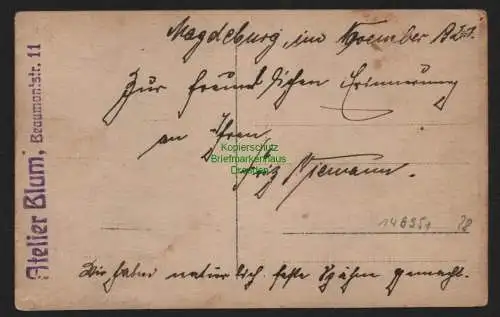 Magdeburg, im November 1921.
Zur freundlichen Erinnerung
an Ihren
Fritz Niemann.
Wir haben natürlich feste Spähne gemacht.
Atelier Blum, Beaumontstr. 11
Kopierschutz
Briefmarkenhaus
Dresden